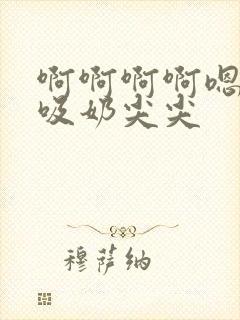 啊啊啊啊嗯
吸奶尖尖
穆萨纳